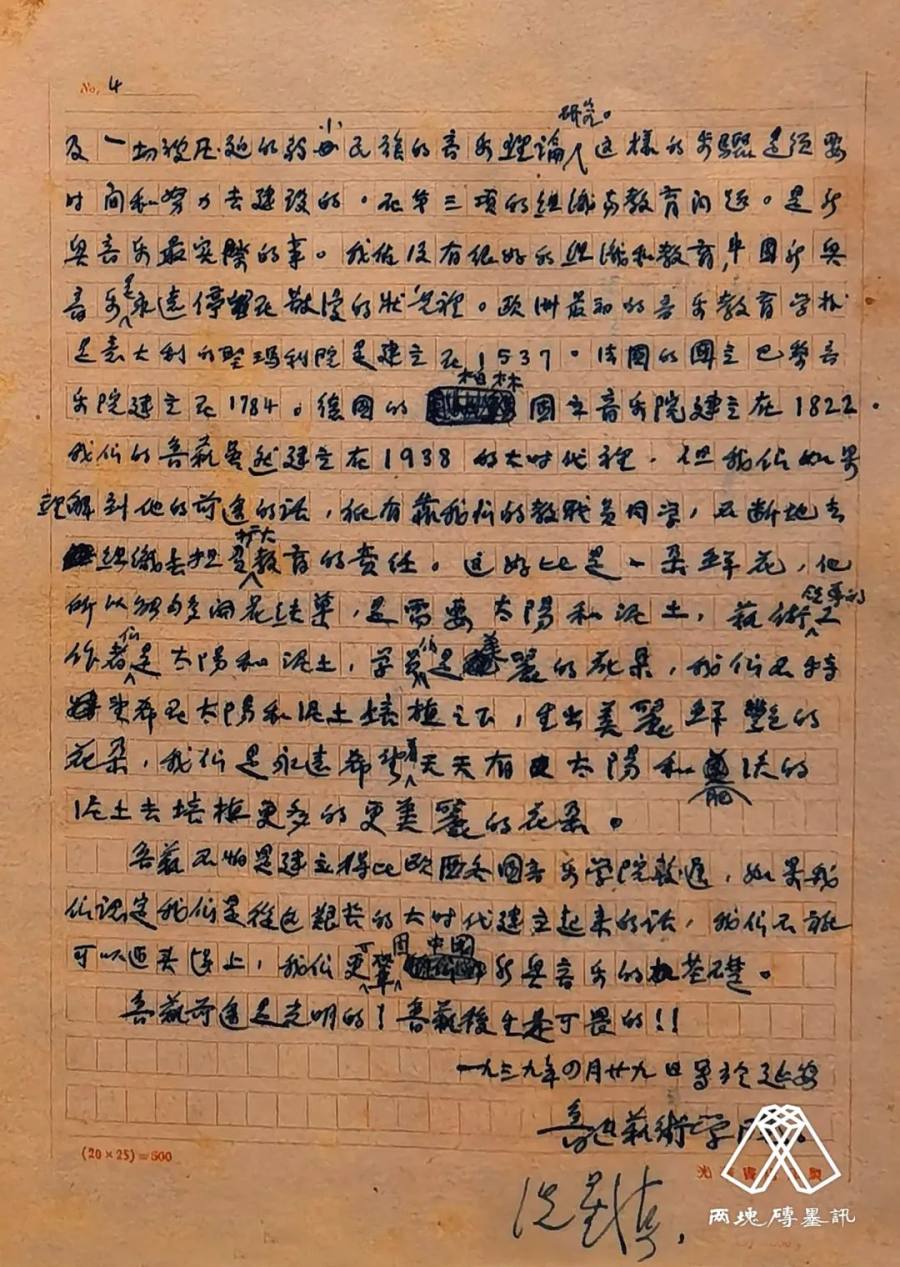 No. 4
及一切被压廹的弱小民族的音乐理論研究。这樣的步驟是須要
时间和努力去建設的。在第三項的组織与教育问题。是新
興音乐最实際的事。我们没有很好的组織和教育,中国新興
音乐是永遠停留在散漫的狀况裡。欧洲最初的音乐教育学校
是意大利的聖瑪利院是建立在1537。法國的國立巴黎音
乐院建立在1784。德國的柏林國立音乐院建立在1822。
我们的鲁藝虽然建立在1938的大时代裡。但我们如果
理解到他的前途的话,祗有靠我们的教职员同学,不断地去
组織去担負扩大教育的责任。这好比是一朵鲜花,他
所以能夠多開花结菓,是需要太陽和泥土,藝術領導的工
作者们是太陽和泥土,学員们是美麗的花朵,我们不特
希望在太陽和泥土培植之下,生出美麗鲜艷的
花朵,我们是永遠希望着天天有太陽和肥沃的
泥土去培植更多的更美麗的花朵。
鲁藝不怕是建立得比欧西各國音乐学院較遲,如果我
们認定我们是從这艱苦的大时代建立起来的话,我们不祗
可以迎头赶上,我们更可鞏固中國新興音乐的基礎。
鲁藝前途是光明的!鲁藝後生是可畏的!!
一九三九年四月廿九日寫於延安
鲁迅藝術学院
冼星海
(20×25)=500
两塊磚墨訊